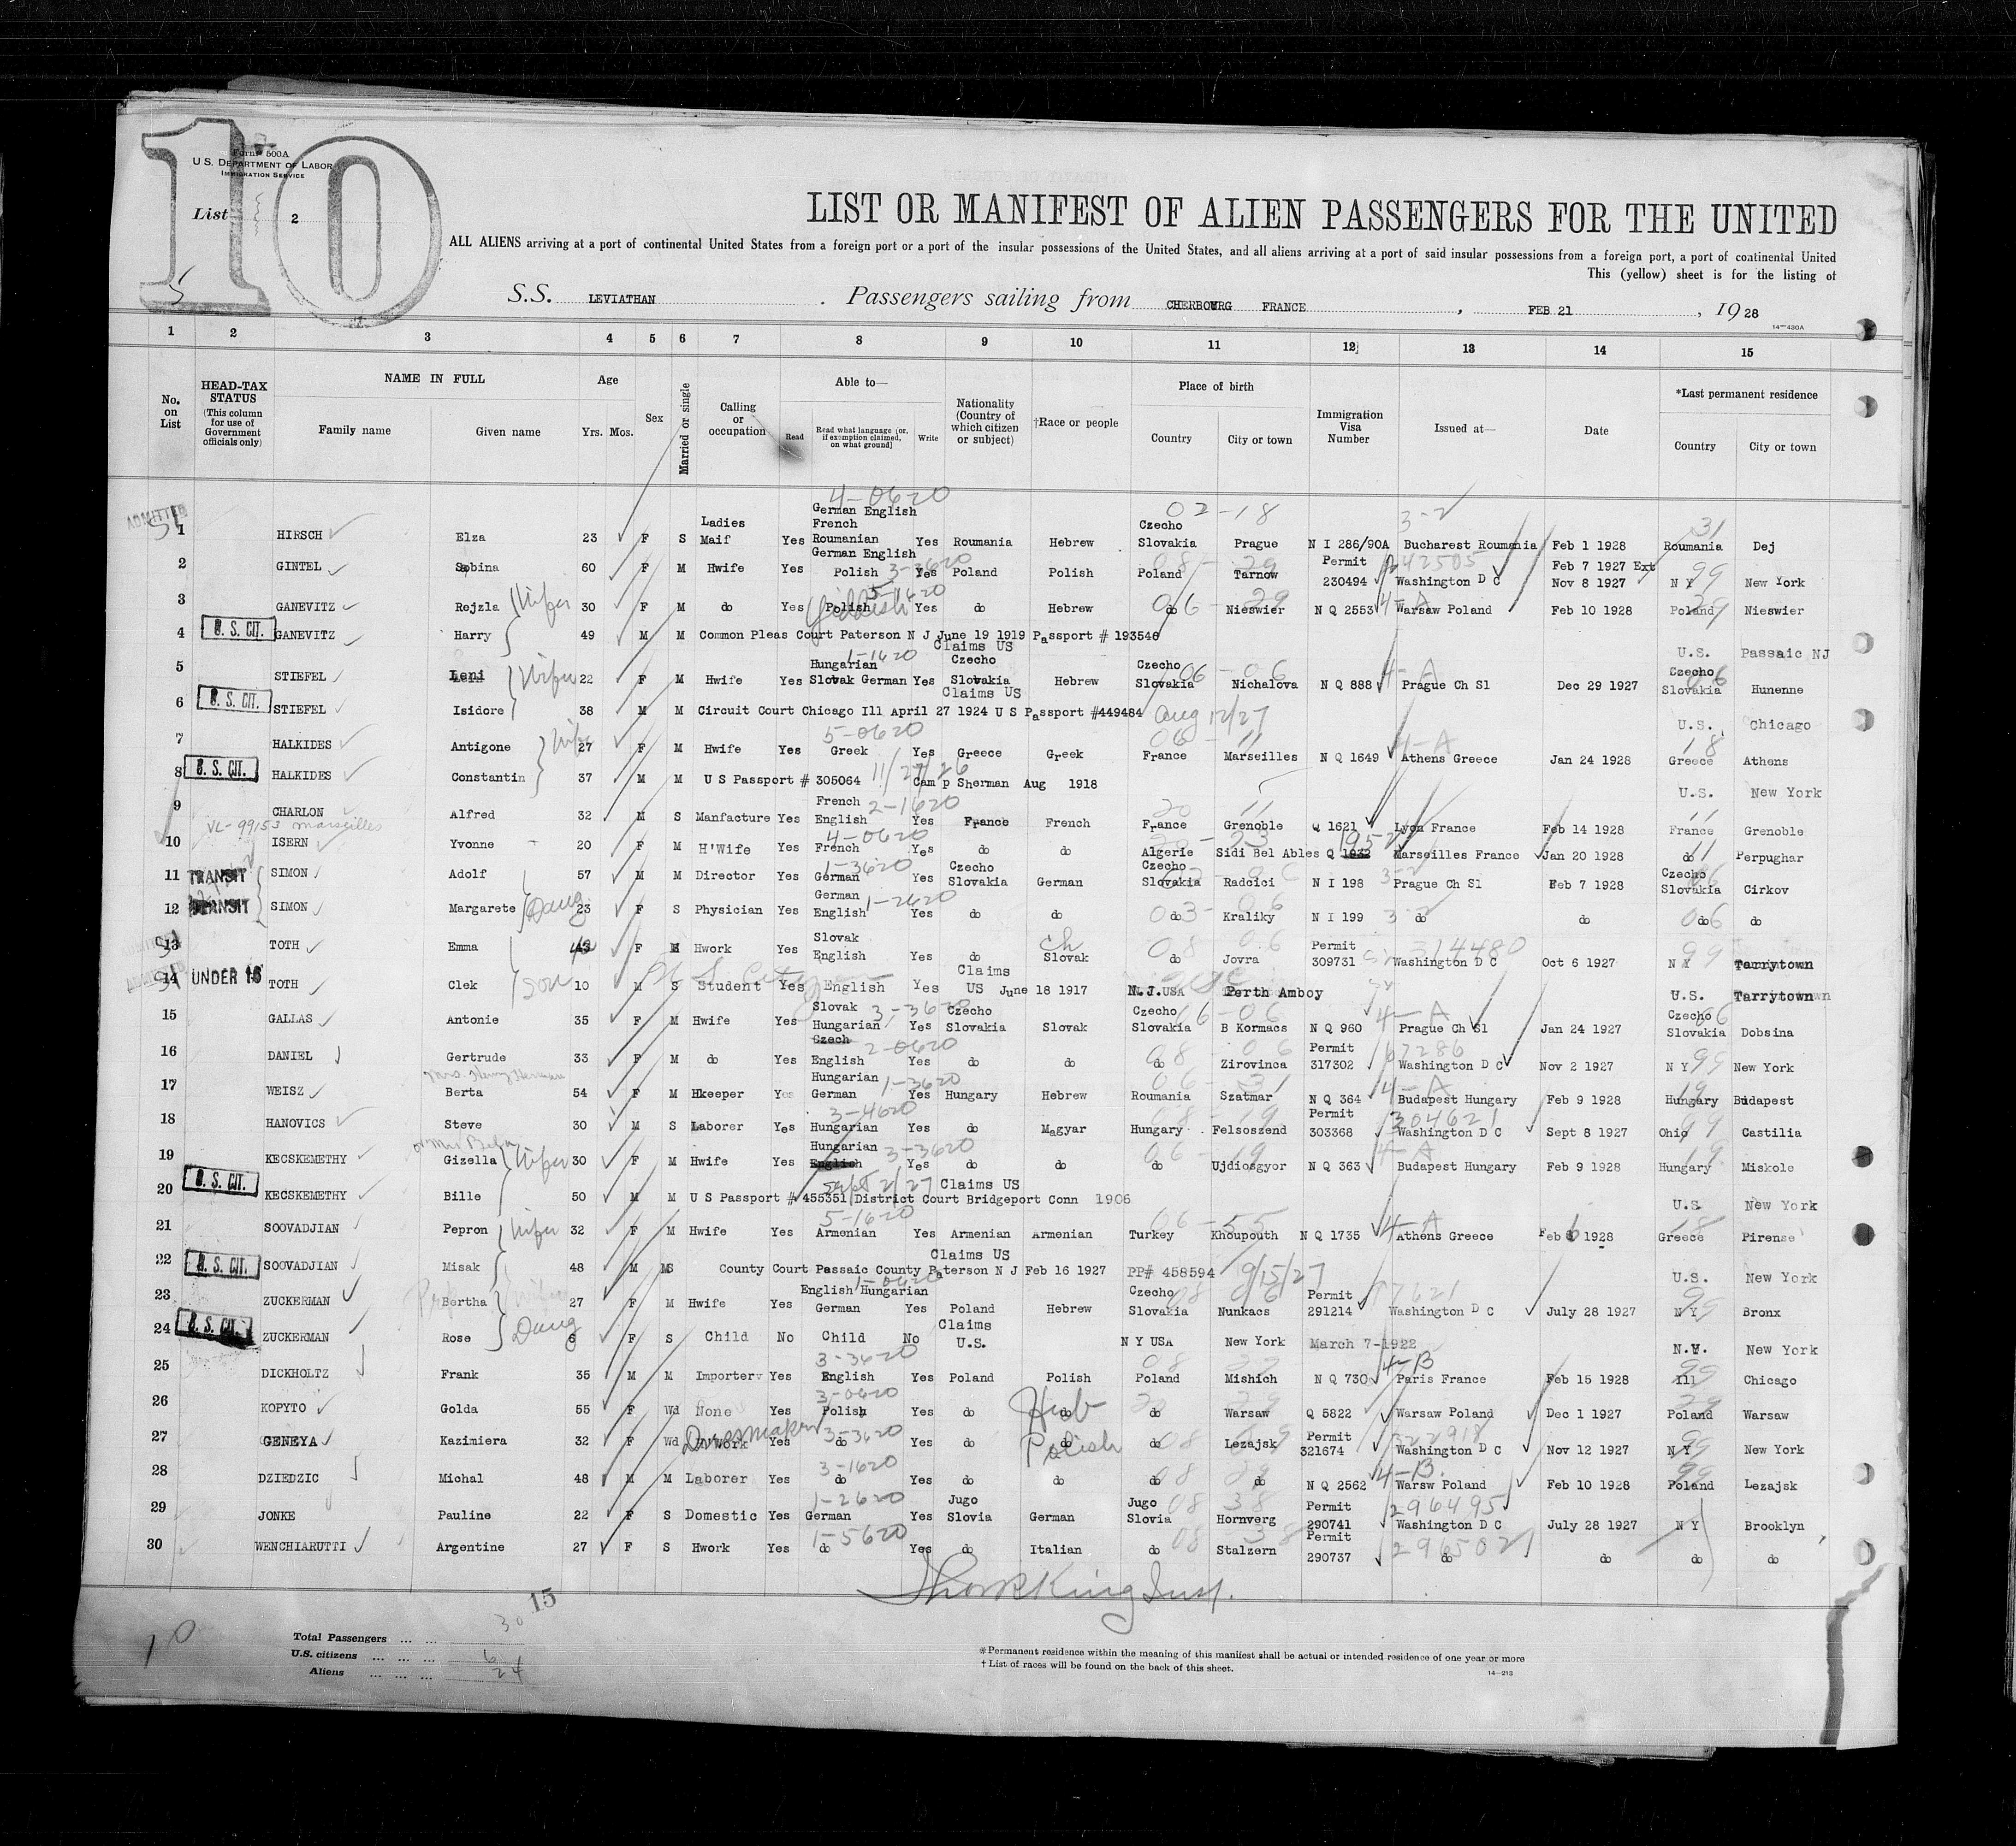 10
Form 500A
U.S. DEPARTMENT OF LABOR
IMMIGRATION SERVICE
List 2
LIST OR MANIFEST OF ALIEN PASSENGERS FOR THE UNITED
ALL ALIENS arriving at a port of continental United States from a foreign port or a port of the insular possessions of the United States, and all aliens arriving at a port of said insular possessions from a foreign port, a port of continental United
This (yellow) sheet is for the listing of
S.S. LEVIATHAN Passengers sailing from CHERBOURG FRANCE, FEB 21, 1928
14—430A
1 2 3 4 5 6 7 8 9 10 11 12 13 14 15
No. on List
HEAD-TAX STATUS (This column for use of Government officials only)
NAME IN FULL Family name Given name
Age Yrs. Mos.
Sex
Married or single
Calling or occupation
Able to— Read Read what language [or, if exemption claimed, on what ground] Write
Nationality (Country of which citizen or subject)
†Race or people
Place of birth Country City or town
Immigration Visa Number
Issued at—
Date
*Last permanent residence Country City or town
ADMITTED 1 HIRSCH Elza 23 F S Ladies Maif Yes German English French Roumanian 4-0620 Yes Roumania Hebrew Czecho Slovakia Prague 02-18 N I 286/90A Bucharest Roumania 3-2 Feb 1 1928 Roumania 31 Dej
2 GINTEL Sabina 60 F M Hwife Yes German English Polish 3-3620 Yes Poland Polish Poland Tarnow 08-29 Permit 230494 Washington D C 42505 Feb 7 1927 Ext Nov 8 1927 N Y 99 New York
3 GANEVITZ Rejzla Wife 30 F M do Yes Polish Yiddish 5-1620 Yes do Hebrew do Nieswier 06-29 N Q 2553 Warsaw Poland 4-A Feb 10 1928 Poland 29 Nieswier
4 U. S. CIT. GANEVITZ Harry 49 M M Common Pleas Court Paterson N J June 19 1919 Passport # 193540 Claims US U.S. Passaic NJ
5 STIEFEL Leni Wife 22 F M Hwife Yes Hungarian Slovak German 1-1620 Yes Czecho Slovakia Hebrew Czecho Slovakia Nichalova 06-06 N Q 888 Prague Ch Sl 4-A Dec 29 1927 Czecho Slovakia 06 Hunenne
6 U. S. CIT. STIEFEL Isidore 38 M M Circuit Court Chicago Ill April 27 1924 U S Passport #449484 Claims US Aug 12/27 U.S. Chicago
7 HALKIDES Antigone Wife 27 F M Hwife Yes Greek 5-0620 Yes Greece Greek France Marseilles 06-11 N Q 1649 Athens Greece 4-A Jan 24 1928 Greece 18 Athens
8 U. S. CIT. HALKIDES Constantin 37 M M U S Passport # 305064 11/27/26 Camp Sherman Aug 1918 U.S. New York
9 CHARLON Alfred 32 M S Manfacture Yes French English 2-1620 Yes France French France Grenoble 20 11 Q 1621 Lyon France Feb 14 1928 France 11 Grenoble
VL-99153 Marseilles
10 ISERN Yvonne 20 F M H'Wife Yes French 4-0620 Yes do do Algerie Sidi Bel Ables Q 1932 1952 Marseilles France Jan 20 1928 do 11 Perpughar
11 TRANSIT SIMON Adolf 57 M M Director Yes German 1-3620 Yes Czecho Slovakia German Czecho Slovakia Radcici N I 198 Prague Ch Sl 3-2 Feb 7 1928 Czecho Slovakia 06 Cirkov
12 TRANSIT SIMON Margarete Daug 23 F S Physician Yes German English 1-2620 Yes do do do Kraliky 03-06 N I 199 do 3-2 do do 06 do
13 TOTH Emma F M Hwork Yes Slovak English Yes do Slovak ch do Jovra 08 06 Permit 309731 Washington D C 314480 Oct 6 1927 N Y 99 Tarrytown
14 UNDER 16 TOTH Clek Son 10 M S Student Yes English Yes Claims US June 18 1917 N.J. USA Perth Amboy U.S. Tarrytown
15 GALLAS Antonie 35 F M Hwife Yes Slovak Hungarian 3-3620 Yes Czecho Slovakia Slovak Czecho Slovakia B Kormacs 06-06 N Q 960 Prague Ch Sl 4-A Jan 24 1927 Czecho Slovakia 06 Dobsina
16 DANIEL Gertrude 33 F M do Yes Czech English 2-0620 Yes do do do Zirovinca 08 06 Permit 317302 Washington D C 67286 Nov 2 1927 N Y 99 New York
Mrs. Henry Herman
17 WEISZ Berta 54 F M Hkeeper Yes Hungarian German 1-3620 Yes Hungary Hebrew Roumania Szatmar 06-31 N Q 364 Budapest Hungary 4-A Feb 9 1928 Hungary 19 Budapest
18 HANOVICS Steve 30 M S Laborer Yes Hungarian 3-4620 Yes do Magyar Hungary Felsoszend 08-19 Permit 303368 Washington D C 304621 Sept 8 1927 Ohio 99 Castilia
19 KECSKEMETHY Gizella Wife 30 F M Hwife Yes Hungarian English 3-3620 Yes do do do Ujdiosgyor 06-19 N Q 363 Budapest Hungary 4-A Feb 9 1928 Hungary 19 Miskolc
20 U. S. CIT. KECSKEMETHY Bille 50 M M U S Passport # 455351 District Court Bridgeport Conn 1906 Claims US U.S. New York
21 SOOVADJIAN Pepron Wife 32 F M Hwife Yes Armenian 5-1620 Yes Armenian Armenian Turkey Khoupouth 06-55 N Q 1735 Athens Greece 4-A Feb 6 1928 Greece 18 Pirense
22 U. S. CIT. SOOVADJIAN Misak 48 M MS County Court Passaic County Paterson N J Feb 16 1927 Claims US PP# 458594 9/15/27 U.S. New York
23 ZUCKERMAN Bertha Wife 27 F M Hwife Yes English Hungarian German 1-0620 Yes Poland Hebrew Czecho Slovakia Nunkacs 08 06 Permit 291214 Washington D C 17621 July 28 1927 N Y 99 Bronx
24 U. S. CIT. ZUCKERMAN Rose Daug 6 F S Child No Child No Claims U.S. N Y USA New York March 7-1922 N.Y. New York
25 DICKHOLTZ Frank 35 M M Importer Yes English 3-3620 Yes Poland Polish Poland Mishich 08 N Q 730 Paris France 4-B Feb 15 1928 Ill 99 Chicago
26 KOPYTO Golda 55 F Wd None Yes Polish 3-0620 Yes do do Heb do Warsaw Q 5822 Warsaw Poland Dec 1 1927 Poland 29 Warsaw
27 GENEYA Kazimiera 32 F Wd H'Work Dressmaker Yes do 3-3620 Yes do do Polish do Lezajsk 08 Permit 321674 Washington D C 322918 Nov 12 1927 N Y 99 New York
28 DZIEDZIC Michal 48 M M Laborer Yes do 3-1620 Yes do do do do 08 29 N Q 2562 Warsw Poland 4-B Feb 10 1928 Poland 99 Lezajsk
29 JONKE Pauline 22 F S Domestic Yes German 1-2620 Yes Jugo Slovia German Jugo Slovia Hornverg 08 38 Permit 290741 Washington D C 296495 July 28 1927 N Y Brooklyn
30 WENCHIARUTTI Argentine 27 F S Hwork Yes do 1-5620 Yes do Italian do Stalzern 08 38 Permit 290737 do 296502 do do do
15
10
Total Passengers 30
U.S. citizens 6
Aliens 24
*Permanent residence within the meaning of this manifest shall be actual or intended residence of one year or more
†List of races will be found on the back of this sheet.
14—213